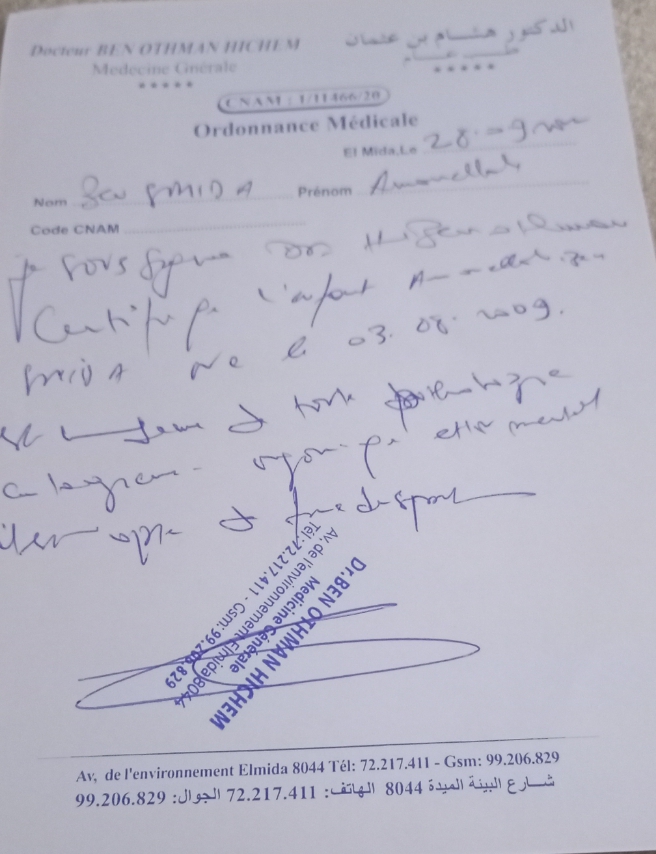 Docteur BEN OTHMAN HICHEM
Medecine Gnérale
*****
الدكتور هشام بن عثمان
طب عام
*****
CNAM : 1/11466/20
Ordonnance Médicale
El Mida,Le 28.09
Nom Ben SMIDA Prénom
Code CNAM
je sous signe Dr H. Ben othman
Certifie que l'enfant
SMIDA né le 03.08.2009.
est de toute pathologie
contagieuse. organique et mental
de faire du sport
Dr.BEN OTHMAN HICHEM
Medicine Générale
Av, de l'environnement Elmida 8044
Tél: 72.217.411 - Gsm: 99.206.829
Av, de l'environnement Elmida 8044 Tél: 72.217.411 - Gsm: 99.206.829
شارع البيئة الميدة 8044 الهاتف: 72.217.411 الجوال: 99.206.829